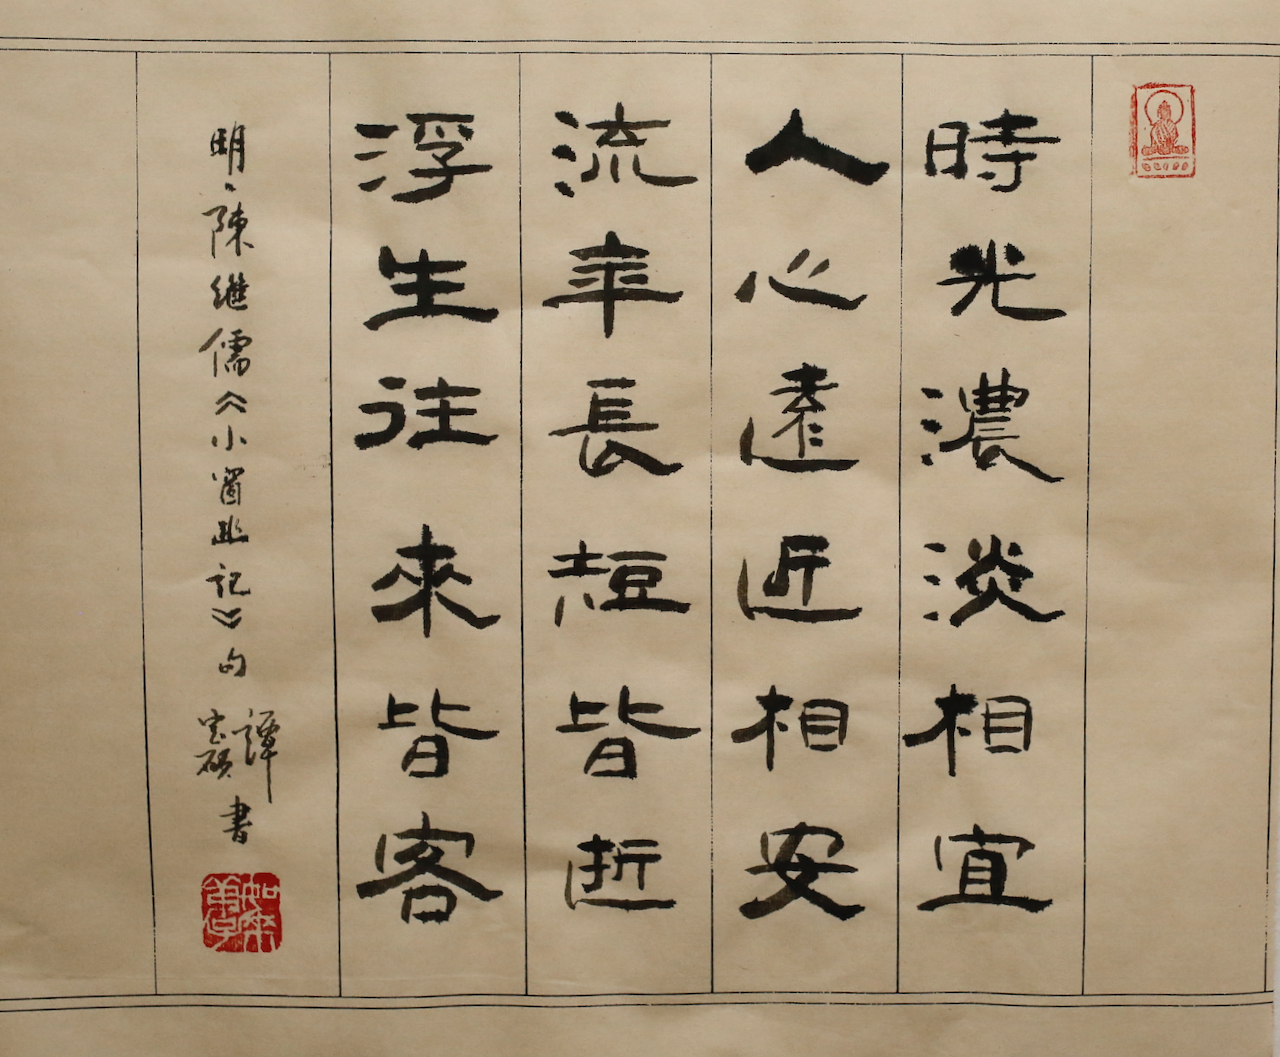 時光濃淡相宜
人心遠近相安
流年長短皆逝
浮生往來皆客
明、陳繼儒《小窗幽记》句
譚書